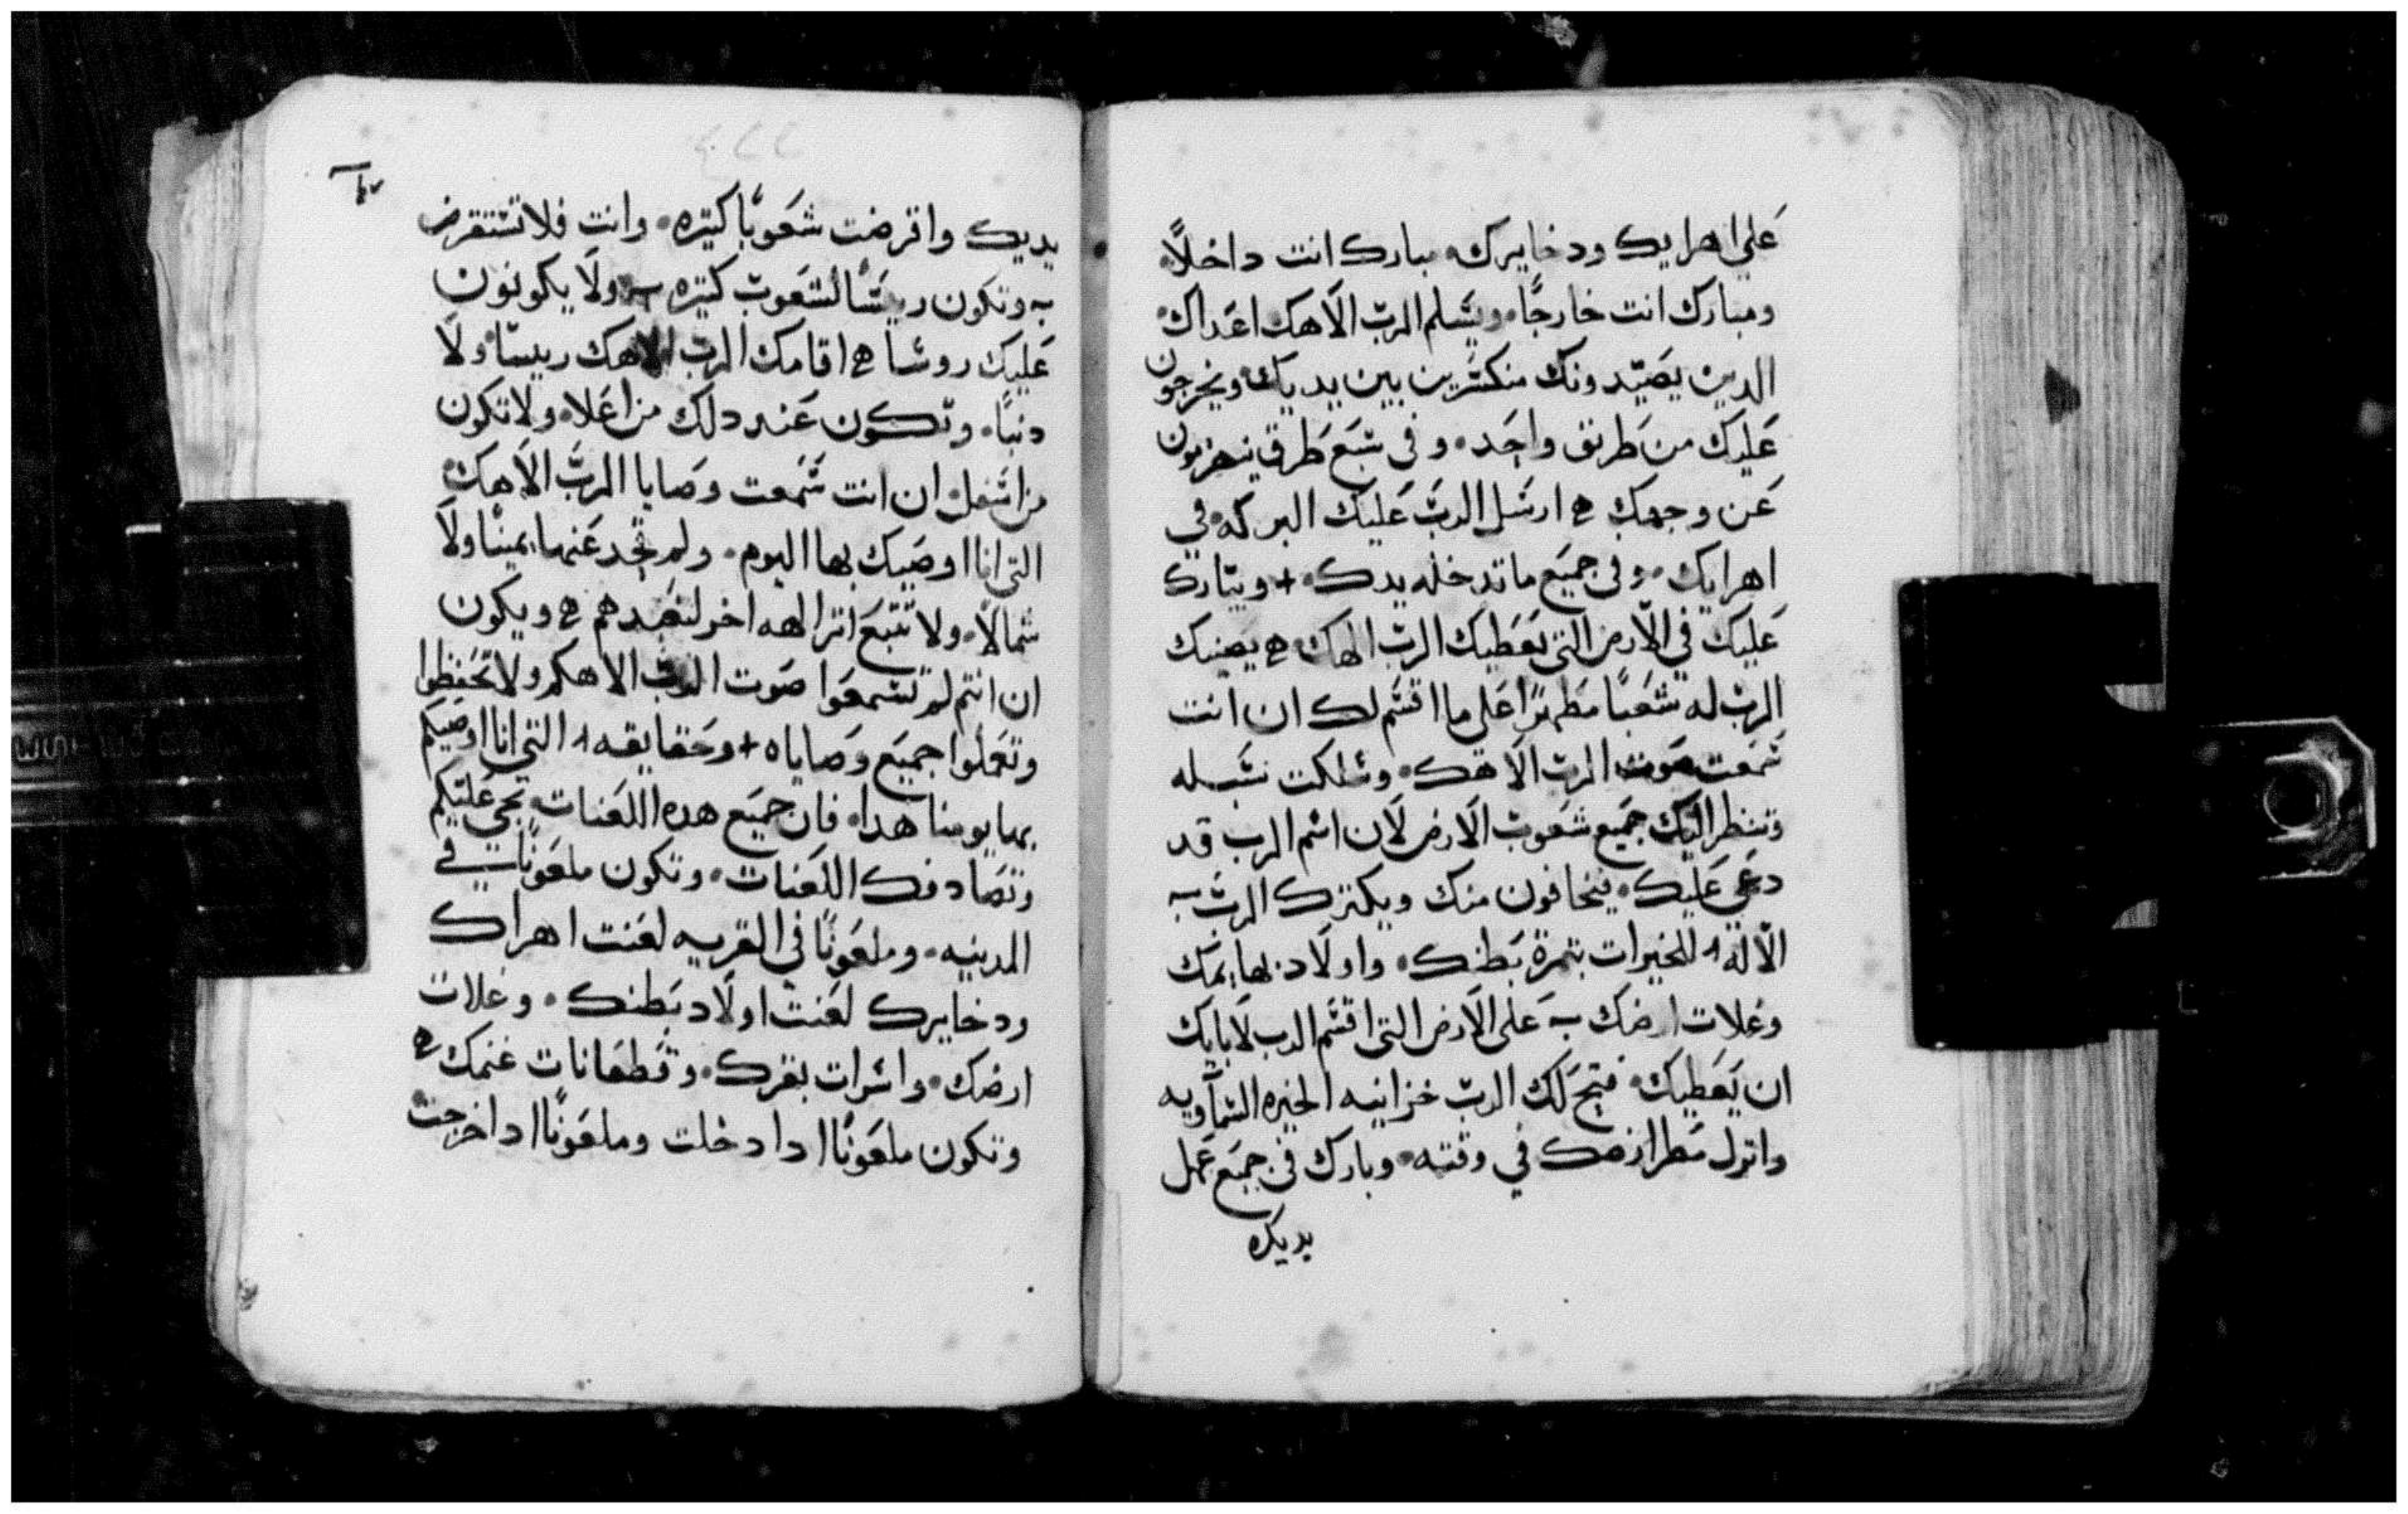 علي اهرايك ودخايرك. مبارك انت داخلاً.
ومبارك انت خارجًا. ويسلم الرب الاهك اعداك.
الدين يصيدونك منكسرين بين يديك. ويخرجون
عليك من طريق واحد. وفي سبع طرق ينهزمون
عن وجهك ح ارسل الرب عليك البركه. في
اهرايك. وفي جميع ما تدخله يدك. + ويبارك
عليك في الارض التي يعطيك الرب الهك ح يصنك
الرب له شعبًا مطهرًا علي ما اقسم لك ان انت
سمعت صوت الرب الاهك. وسلكت سبله
وتنظر اليك جميع شعوب الارض لان اسم الرب قد
دعي عليك. فيخافون منك ويكترك الرب
الاله للخيرات بتمرة بطنك. واولاد بهايمك
وغلات ارضك علي الارض التي اقسم الرب لابايك
ان يعطيك. فتح لك الرب خزاينه الخيره السماويه
وانزل مطر ارضك في وقته. وبارك في جميع عمل
يديك
يديك واقرضت شعوبًا كتيره. وانت فلا تستقرض
وتكون ريسًا لشعوب كتيره. ولا يكونون
عليك روسا ح اقامك الرب الاهك ريسا. ولا
دنبًا. وتكون عند دلك من اعلا. ولا تكون
من اسفل. ان انت سمعت وصايا الرب الاهك.
التي انا اوصيك بها اليوم. ولم تحد عنها يمينًا ولا
شمالاً. ولا تتبع اتر الهه اخر لتعبدهم ح ويكون
ان انتم لم تسمعوا صوت الرب الاهكم ولا تحفظوا
وتعملوا جميع وصاياه + وحقايقه التي انا اوصيكم
بها يومنا هدا. فان جميع هده اللعنات تجي عليكم
وتصادفك اللعنات. وتكون ملعونًا في
المدينه. وملعونًا في القريه لعنت اهراك
ودخايرك لعنت اولاد بطنك. وغلات
ارضك. واسرات بقرك. وقطعانات غنمك ح
وتكون ملعونًا ادا دخلت وملعونًا ادا خرجت